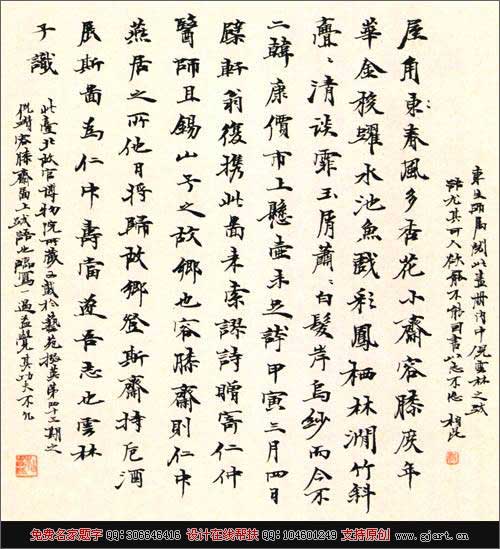 語尤其可人欲罷不能因書以志不忘
屋角東春風多杏花小齋容膝度年
華金梭躍水池魚戲彩鳳栖林澗竹斜
亹〻清談霏玉屑蕭〻白髮岸烏紗而今不
二韓康價市上懸壺未足誇甲寅三月四日
檗軒翁復携此啚来索謬詩贈寄仁仲
醫師且錫山予之故鄉也容膝齋則仁中
燕居之所他日將歸故鄉登斯齋持巵酒
展斯啚為仁中壽當遂吾志也雲林
子識
此臺北故宮博物院所藏又載於藝苑掇英第四十三期之
倪瓚容膝齋啚上跋語也臨寫一過益覺其功夫不凡
免费名家题字 QQ:306646416 设计在线帮扶 QQ:104601249 支持原创 www.gjart.cn